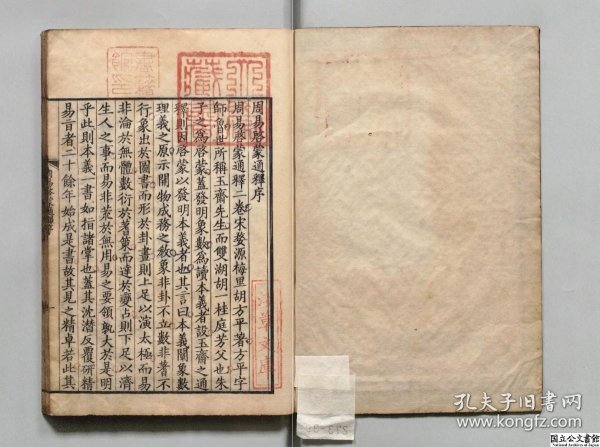 周易啓蒙通釋序
周易啓蒙通釋二卷宋婺源梅里胡方平著方平字
師魯世所稱玉齋先生而雙湖胡一桂庭芳父也朱
子之爲啓蒙蓋發明象數爲讀本義者設玉齋之通
釋則因啓蒙以發明本義者也其言曰本義闡象數
理義之原示開物成務之敎象非卦不立數非蓍不
行象出於圖書而形於卦畫則上足以演太極而易
非淪於無體數衍於蓍策而達於變占則下足以濟
生人之事而易非荒於無用易之要領孰大於是明
乎此則本義一書如指諸掌也蓋其沈潛反覆研精
易旨者二十餘年始成是書故其見之精卓若此其
孔夫子旧書网
www.kongfz.com
国立公文書館
National Archives of Japan